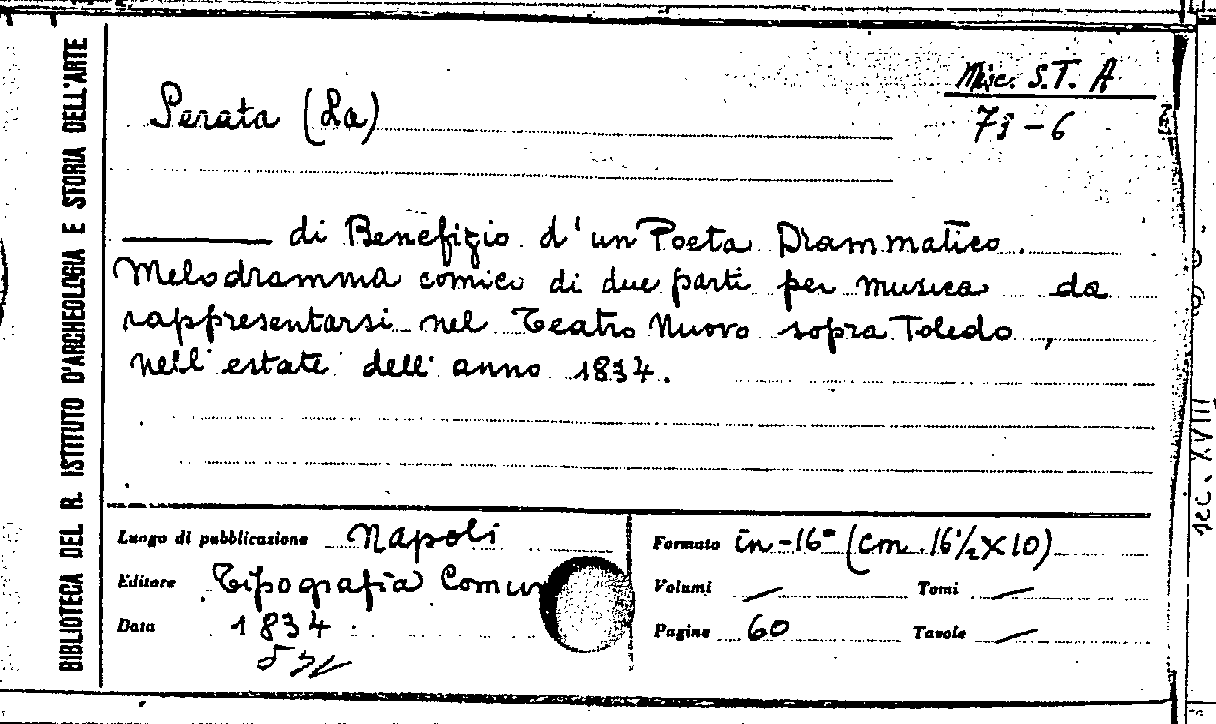 BIBLIOTECA DEL R. ISTITUTO D'ARCHEOLOGIA E STORIA DELL'ARTE
Misc. S.T. A
73-6
Serata (La)
di Benefizio d'un Poeta Drammatico.
Melodramma comico di due parti per musica da
rappresentarsi nel Teatro Nuovo sopra Toledo,
nell'estate dell'anno 1834.
Luogo di pubblicazione Napoli
Editore Tipografia Comun
Data 1834.
Formato in-16° (cm. 16½X10)
Volumi — Tomi —
Pagine 60 Tavole —
sec. XVIII